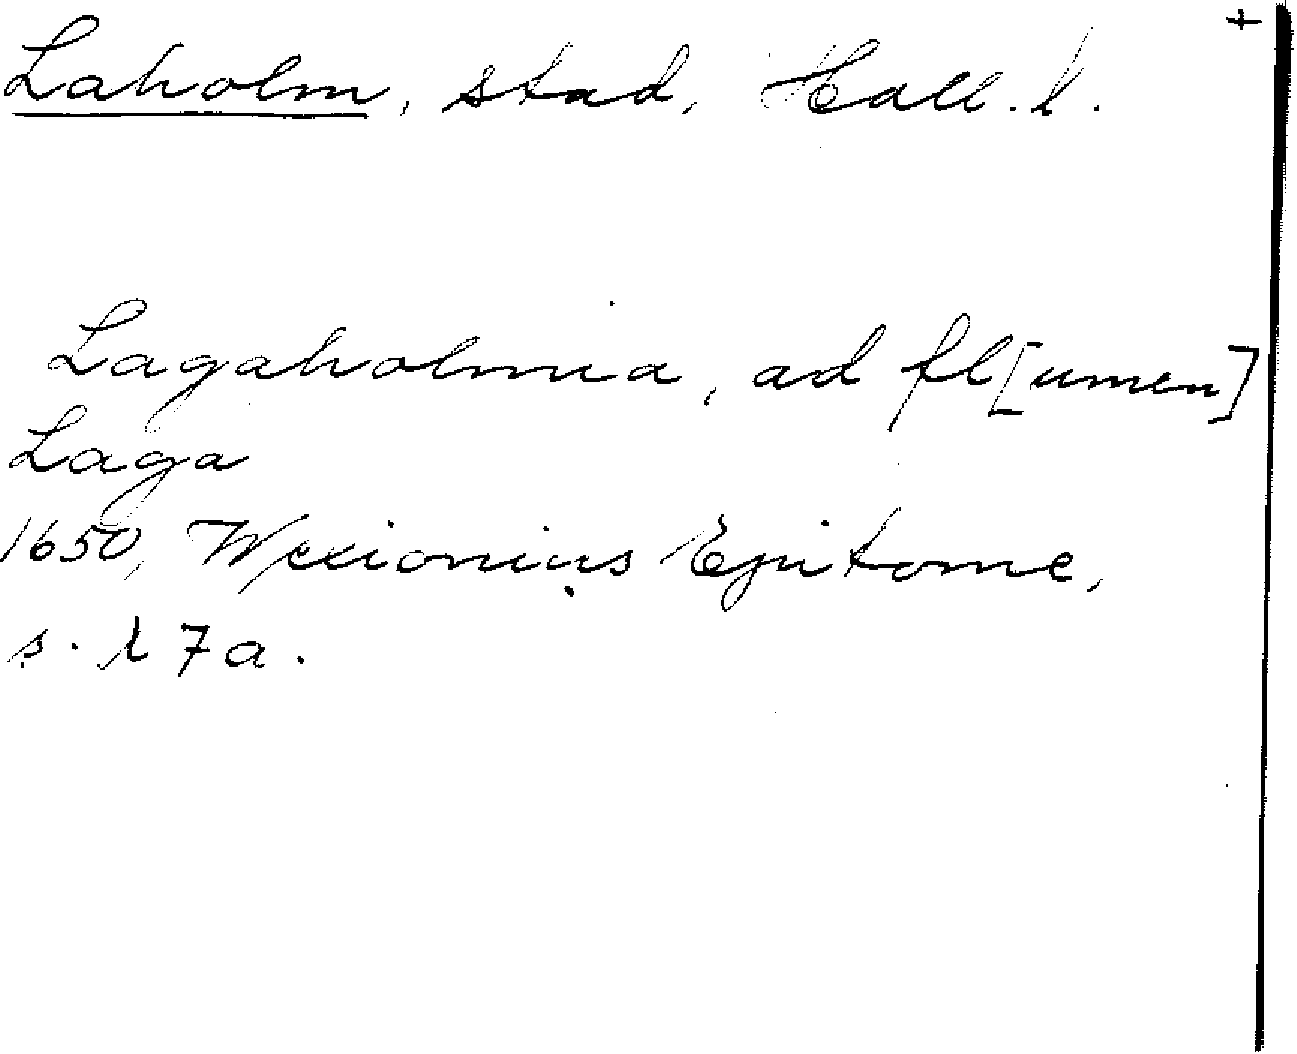 +
Laholm, stad, Hall. l.
Lagaholmia, ad fl[umen]
Laga
1650, Wexionius Epitome,
s. l 7 a.